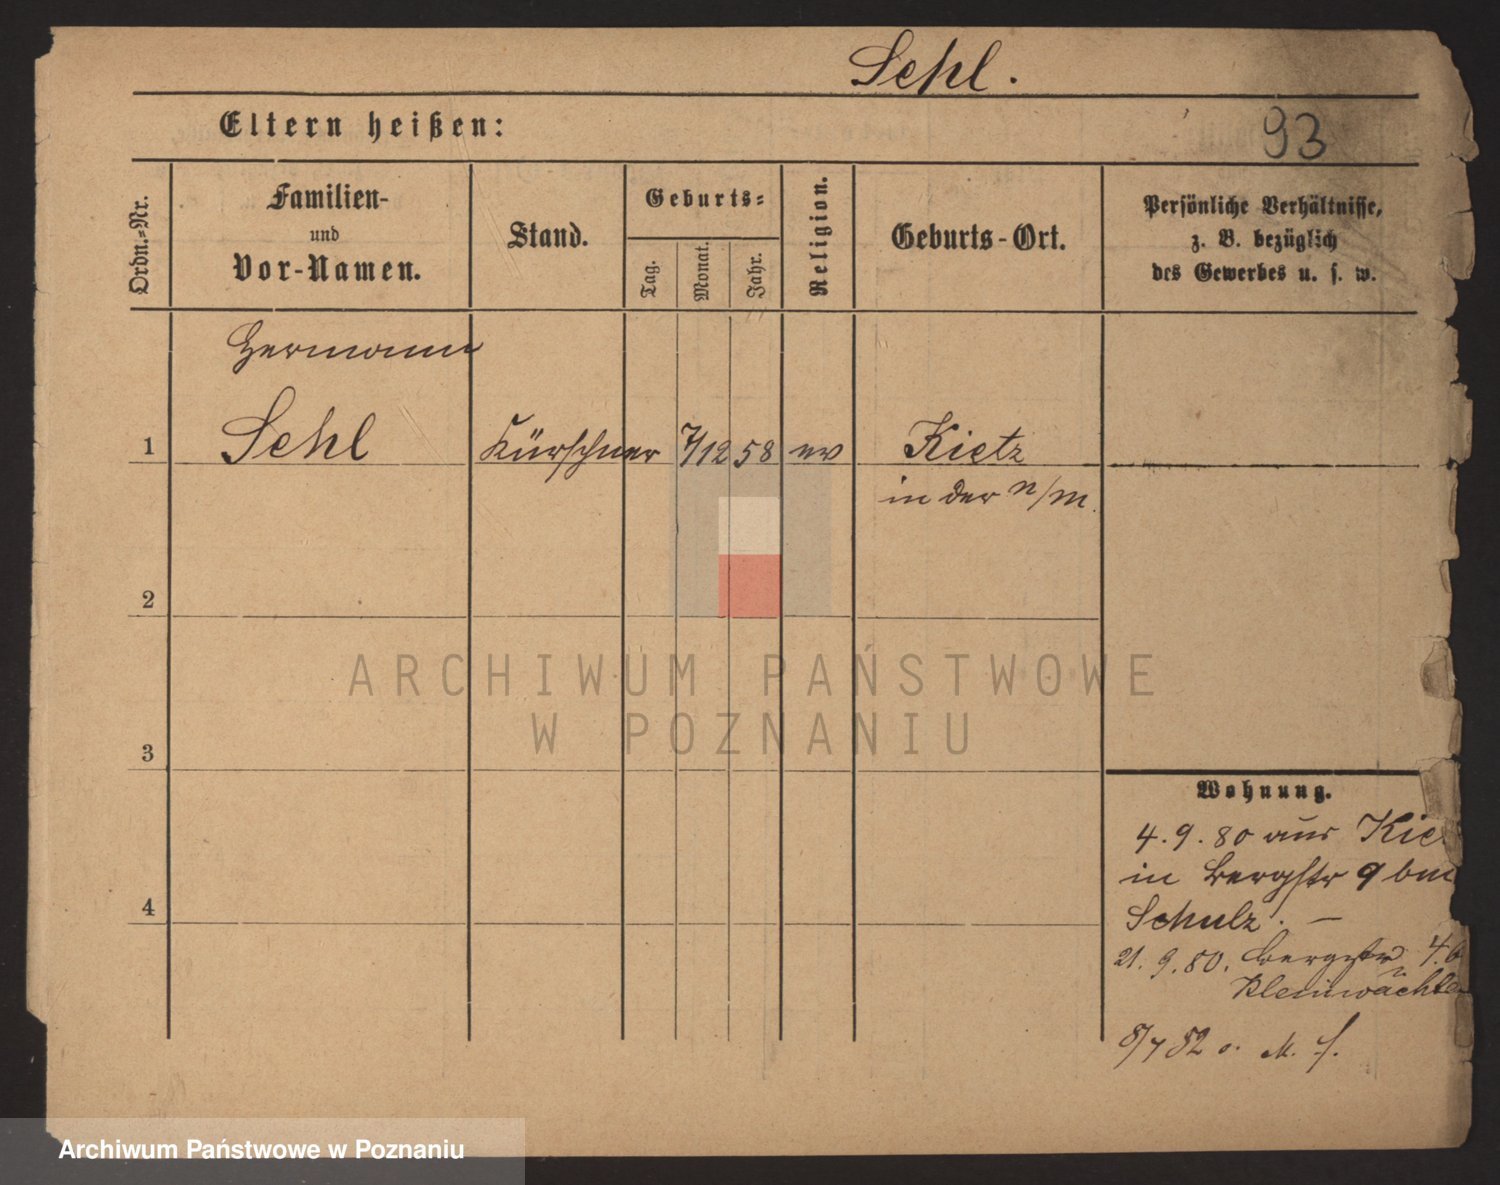 Sehl.
93
Eltern heißen:
Ordn.=Nr.
Familien-
und
Vor-Namen.
Stand.
Geburts=
Tag.
Monat.
Jahr.
Religion.
Geburts-Ort.
Persönliche Verhältnisse,
z. B. bezüglich
des Gewerbes u. s. w.
Hermann
1 Sehl Kürschner 7/12 58 ev Kietz
in der n/m.
2
3
4
Wohnung.
4. 9. 80 aus Kie
in Bergstr 9 bei
Schulz. —
21. 9. 80. Bergstr 4. b
Kleinwächte
8/7 82 o. M. f.
ARCHIWUM PAŃSTWOWE
W POZNANIU
Archiwum Państwowe w Poznaniu